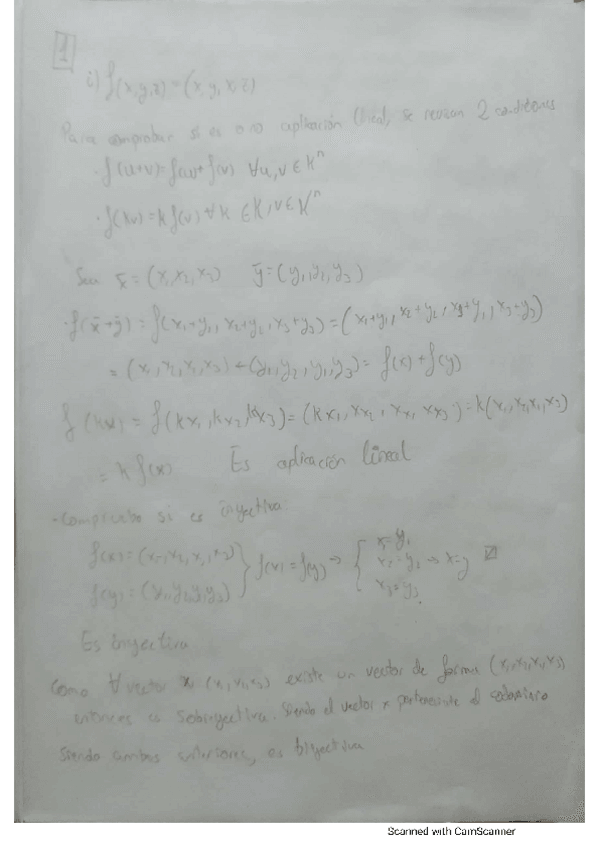 1
i) f(x,y,z)=(x, y, x, z)
Para comprobar si es o no aplicación lineal, se revisan 2 condiciones
· f(u+v) = f(u)+f(v) ∀u,v ∈ K^n
· f(kv) = k f(v) ∀k ∈ K, v ∈ K^n
Sean x̄ = (x1,x2,x3) ȳ = (y1,y2,y3)
· f(x̄+ȳ) = f(x1+y1, x2+y2, x3+y3) = (x1+y1, x2+y2, x1+y1, x3+y3)
= (x1,x2,x1,x3) + (y1,y2,y1,y3) = f(x) + f(y)
f(kx) = f(kx1,kx2,kx3) = (kx1, kx2, kx1, kx3) = k(x1,x2,x1,x3)
= k f(x) Es aplicación lineal
· Compruebo si es inyectiva
f(x) = (x1,x2,x1,x3) } f(x) = f(y) → { x1=y1
f(y) = (y1,y2,y1,y3) x2=y2 → x=y
x3=y3
Es inyectiva
Como ∀ vector x (x1,x2,x3) existe un vector de forma (x1,x2,x1,x3)
entonces es sobreyectiva. Siendo el vector x perteneciente al
Siendo ambas anteriores, es biyectiva
Scanned with CamScanner